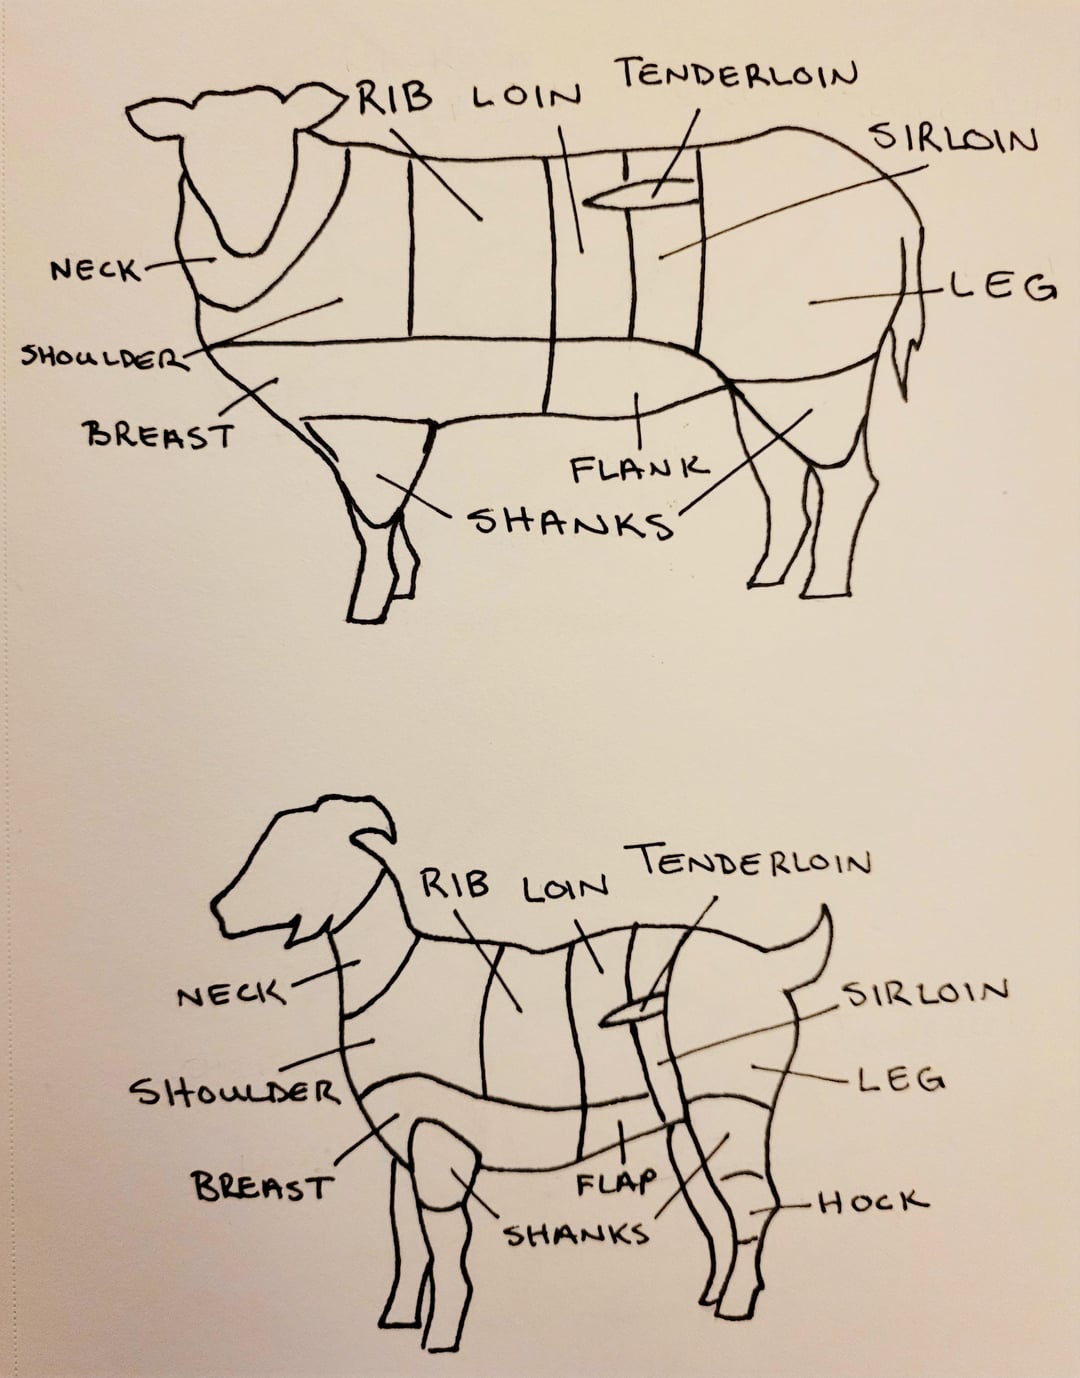 RIB LOIN TENDERLOIN
SIRLOIN
NECK
LEG
SHOULDER
BREAST
FLANK
SHANKS
RIB LOIN TENDERLOIN
NECK
SIRLOIN
SHOULDER
LEG
BREAST
FLAP
HOCK
SHANKS